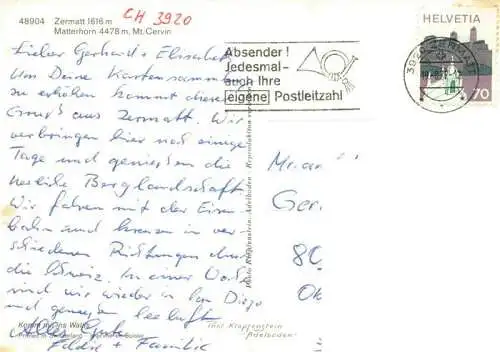 48904 Zermatt 1616 m
Matterhorn 4478 m, Mt. Cervin
CH 3920
HELVETIA
70
Absender!
Jedesmal-
auch Ihre
eigene Postleitzahl
Lieber Gerhard + Elisabeth
Um Deine Kartensammlung
zu erhöhen kommt dieser
Gruß aus Zermatt. Wir
verbringen hier noch einige
Tage und geniessen die
herliche Berglandschaft.
Wir fahren mit der Eisen
bahn und kreuzen in ver-
schiedenen Richtungen durch
die Schweiz. In einer Woche
sind wir wieder in San Diego
und
Alles Gute
Eddie + Familie
Mr. an
Ger
80
Ok
Photo Klopfenstein, Adelboden
Foto Klopfenstein
Adelboden